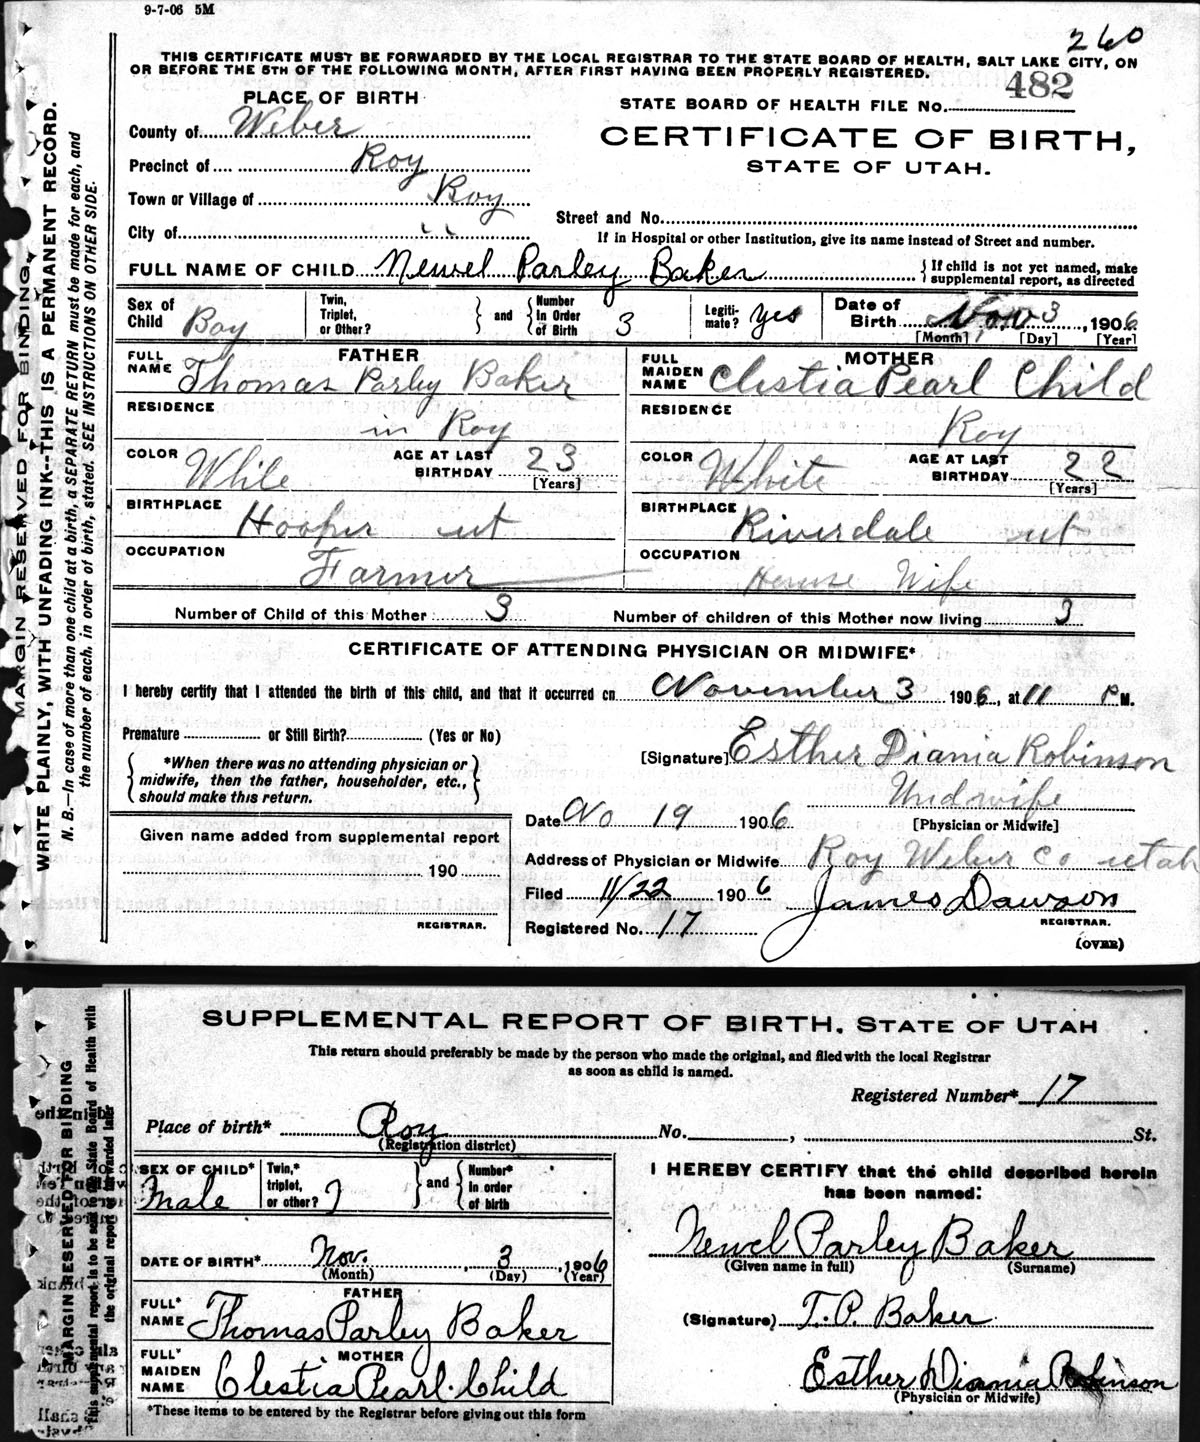 9-7-06 5M
260
THIS CERTIFICATE MUST BE FORWARDED BY THE LOCAL REGISTRAR TO THE STATE BOARD OF HEALTH, SALT LAKE CITY, ON
OR BEFORE THE 5TH OF THE FOLLOWING MONTH, AFTER FIRST HAVING BEEN PROPERLY REGISTERED.
482
PLACE OF BIRTH
STATE BOARD OF HEALTH FILE No.
County of Weber
CERTIFICATE OF BIRTH,
Precinct of Roy
STATE OF UTAH.
Town or Village of Roy
Street and No.
City of "
If in Hospital or other Institution, give its name instead of Street and number.
FULL NAME OF CHILD Newel Parley Baker
If child is not yet named, make supplemental report, as directed
Sex of Child Boy
Twin, Triplet, or Other? and Number In Order of Birth 3
Legitimate? yes
Date of Birth Nov 3, 1906
[Month] [Day] [Year]
FATHER
FULL NAME Thomas Parley Baker
MOTHER
FULL MAIDEN NAME Clestia Pearl Child
RESIDENCE in Roy
RESIDENCE Roy
COLOR White AGE AT LAST BIRTHDAY 23 [Years]
COLOR White AGE AT LAST BIRTHDAY 22 [Years]
BIRTHPLACE Hooper ut
BIRTHPLACE Riverdale ut
OCCUPATION Farmer
OCCUPATION House Wife
Number of Child of this Mother 3
Number of children of this Mother now living 3
CERTIFICATE OF ATTENDING PHYSICIAN OR MIDWIFE*
I hereby certify that I attended the birth of this child, and that it occurred on November 3 1906, at 11 P M.
Premature or Still Birth? (Yes or No)
*When there was no attending physician or
midwife, then the father, householder, etc.,
should make this return.
[Signature] Esther Diania Robinson
Midwife
[Physician or Midwife]
Date No 19 1906
Given name added from supplemental report
190
REGISTRAR.
Address of Physician or Midwife Roy Weber Co utah
Filed 11/22 1906 James Dawson
REGISTRAR.
Registered No. 17
(OVER)
MARGIN RESERVED FOR BINDING.
WRITE PLAINLY, WITH UNFADING INK--THIS IS A PERMANENT RECORD.
N. B.—In case of more than one child at a birth, a SEPARATE RETURN must be made for each, and
the number of each, in order of birth, stated. SEE INSTRUCTIONS ON OTHER SIDE.
SUPPLEMENTAL REPORT OF BIRTH. STATE OF UTAH
This return should preferably be made by the person who made the original, and filed with the local Registrar
as soon as child is named.
Registered Number* 17
Place of birth* Roy No. , St.
(Registration district)
SEX OF CHILD* Male
Twin,* triplet, or other? and Number* in order of birth
I HEREBY CERTIFY that the child described herein
has been named:
Newel Parley Baker
(Given name in full) (Surname)
DATE OF BIRTH* Nov. 3, 1906
(Month) (Day) (Year)
FATHER
FULL* NAME Thomas Parley Baker
(Signature) T. P. Baker
MOTHER
FULL* MAIDEN NAME Clestia Pearl Child
Esther Diannia Robinson
(Physician or Midwife)
*These items to be entered by the Registrar before giving out this form
MARGIN RESERVED FOR BINDING
This supplemental report is to be sent to the State Board of Health with
the original report or forwarded later